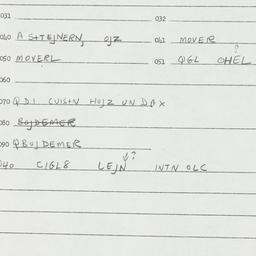 031 032
040 A S+TEJNERN, OJZ 041 MOVER
050 MOVERL 051 QGL OHEL ?
060
070 QDI CUIS+N HOJZ UN DAX
080 BOJDEMER
090 QBOJDEMER
040 CIGL8 LEJN ↓? INTN OLC